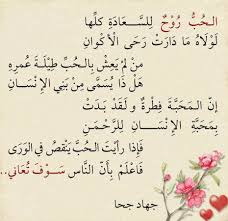 الحُبُّ رُوْحٌ لِلسَّعَادَةِ كلِّها
لَوْلَاهُ مَا دَارَتْ رَحَى الْأَكْوَانِ
مَنْ لَمْ يَعِشْ بِالحُبِّ طِيْلَةَ عُمرِهِ
هَلْ ذَا يُسَمَّى مِنْ بَنِي الإِنْسَانِ
إنَّ المَحَبَّةَ فِطرَةٌ و لَقَدْ بَدَتْ
بِمَحَبَّةِ الإنْسَانِ لِلرَّحْمَنِ
فَإذا رأيْتَ الحُبَّ يَنْقصُ في الوَرَى
فَاعْلَمْ بِأنَّ النَّاسَ سَوْفَ تُعَانِي..
جهاد جحا